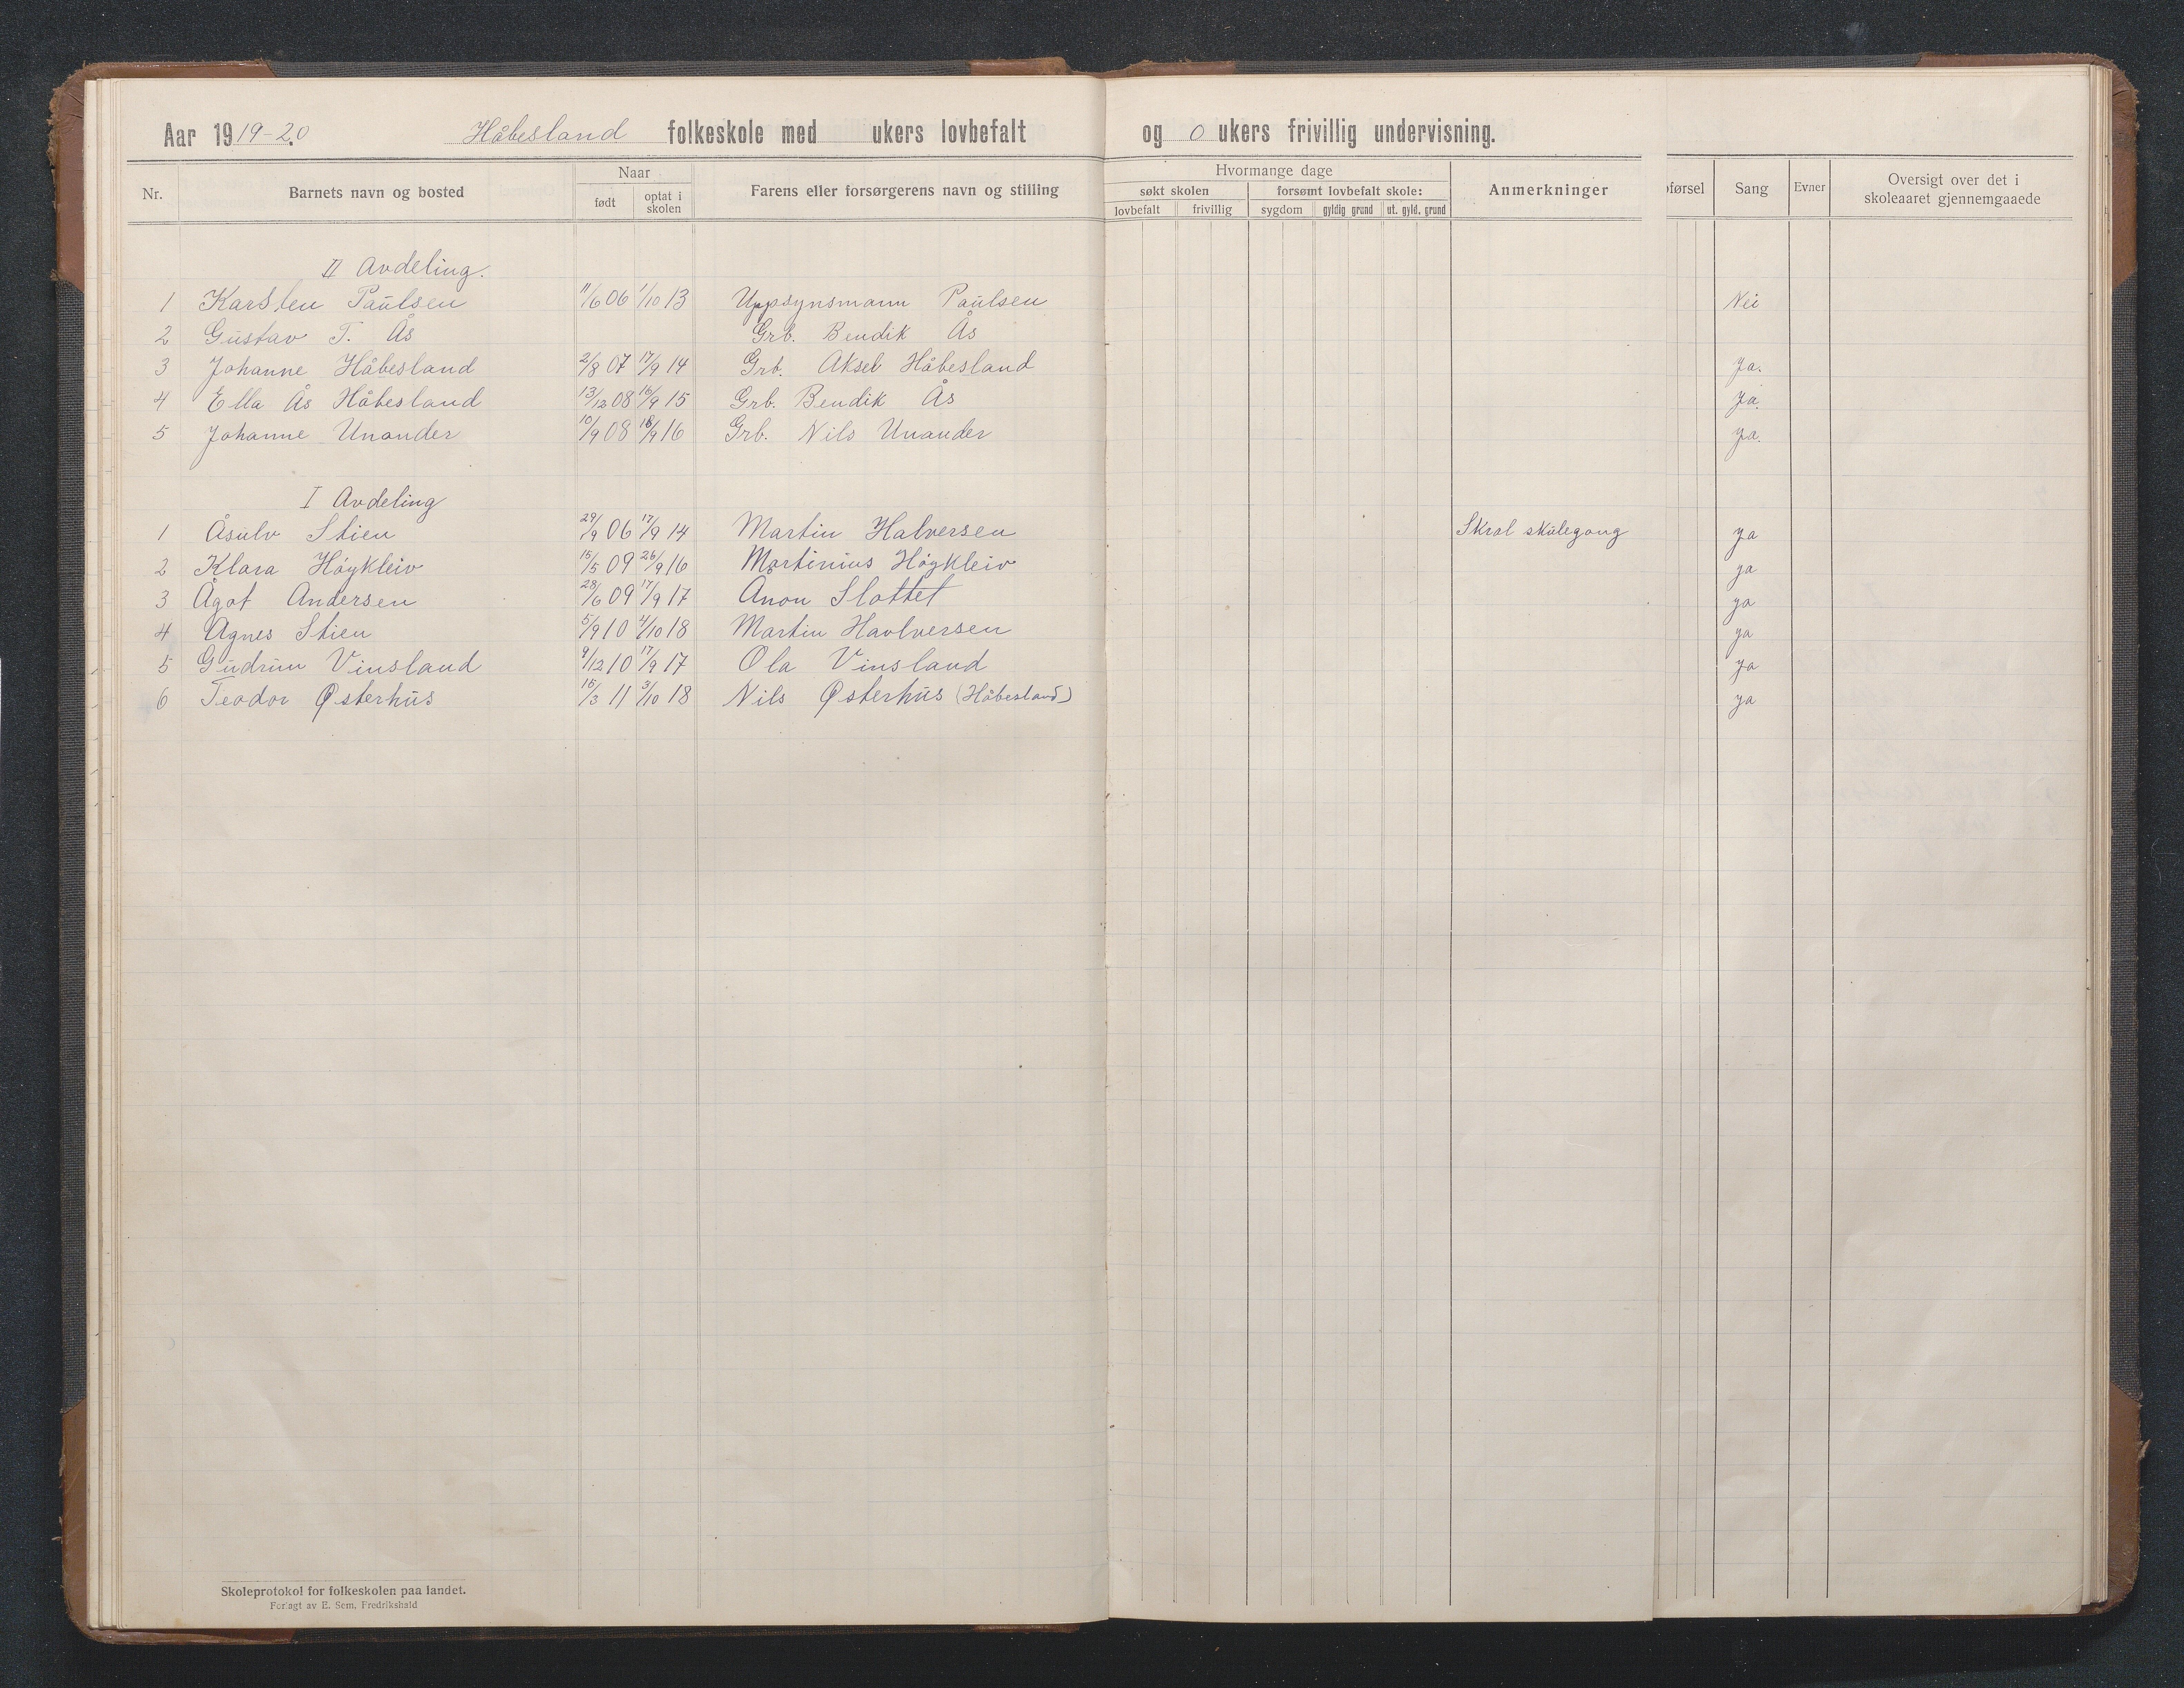 Aar 1919-20. Håbesland folkeskole med ukers lovbefalt og 0 ukers frivillig undervisning.
Nr. Barnets navn og bosted Naar født optat i skolen Farens eller forsørgerens navn og stilling Hvormange dage søkt skolen lovbefalt frivillig forsømt lovbefalt skole: sygdom gyldig grund ut. gyld. grund Anmerkninger førsel Sang Evner Oversigt over det i skoleaaret gjennemgaaede
II Avdeling.
1 Karsten Paulsen 11/6 06 1/10 13 Uppsynsmann Paulsen Nei
2 Gustav T. Ås Grb. Bendik Ås
3 Johanne Håbesland 2/8 07 17/9 14 Grb. Aksel Håbesland Ja.
4 Ella Ås Håbesland 13/12 08 16/9 15 Grb. Bendik Ås Ja.
5 Johanne Unander 10/9 08 18/9 16 Grb. Nils Unander Ja.
I Avdeling
1 Åsulv Stien 29/9 06 17/9 14 Martin Halversen Skral skulegang ja
2 Klara Höykleiv 15/5 09 26/9 16 Martinius Höykleiv ja
3 Ågot Andersen 28/6 09 17/9 17 Anon Slottet ja
4 Agnes Stien 5/9 10 4/10 18 Martin Havlversen ja
5 Gudrun Vinsland 9/12 10 17/9 17 Ola Vinsland ja
6 Teodor Østerhus 16/3 11 3/10 18 Nils Østerhus (Håbesland) ja
Skoleprotokol for folkeskolen paa landet.
Forlagt av E. Sem, Fredrikshald